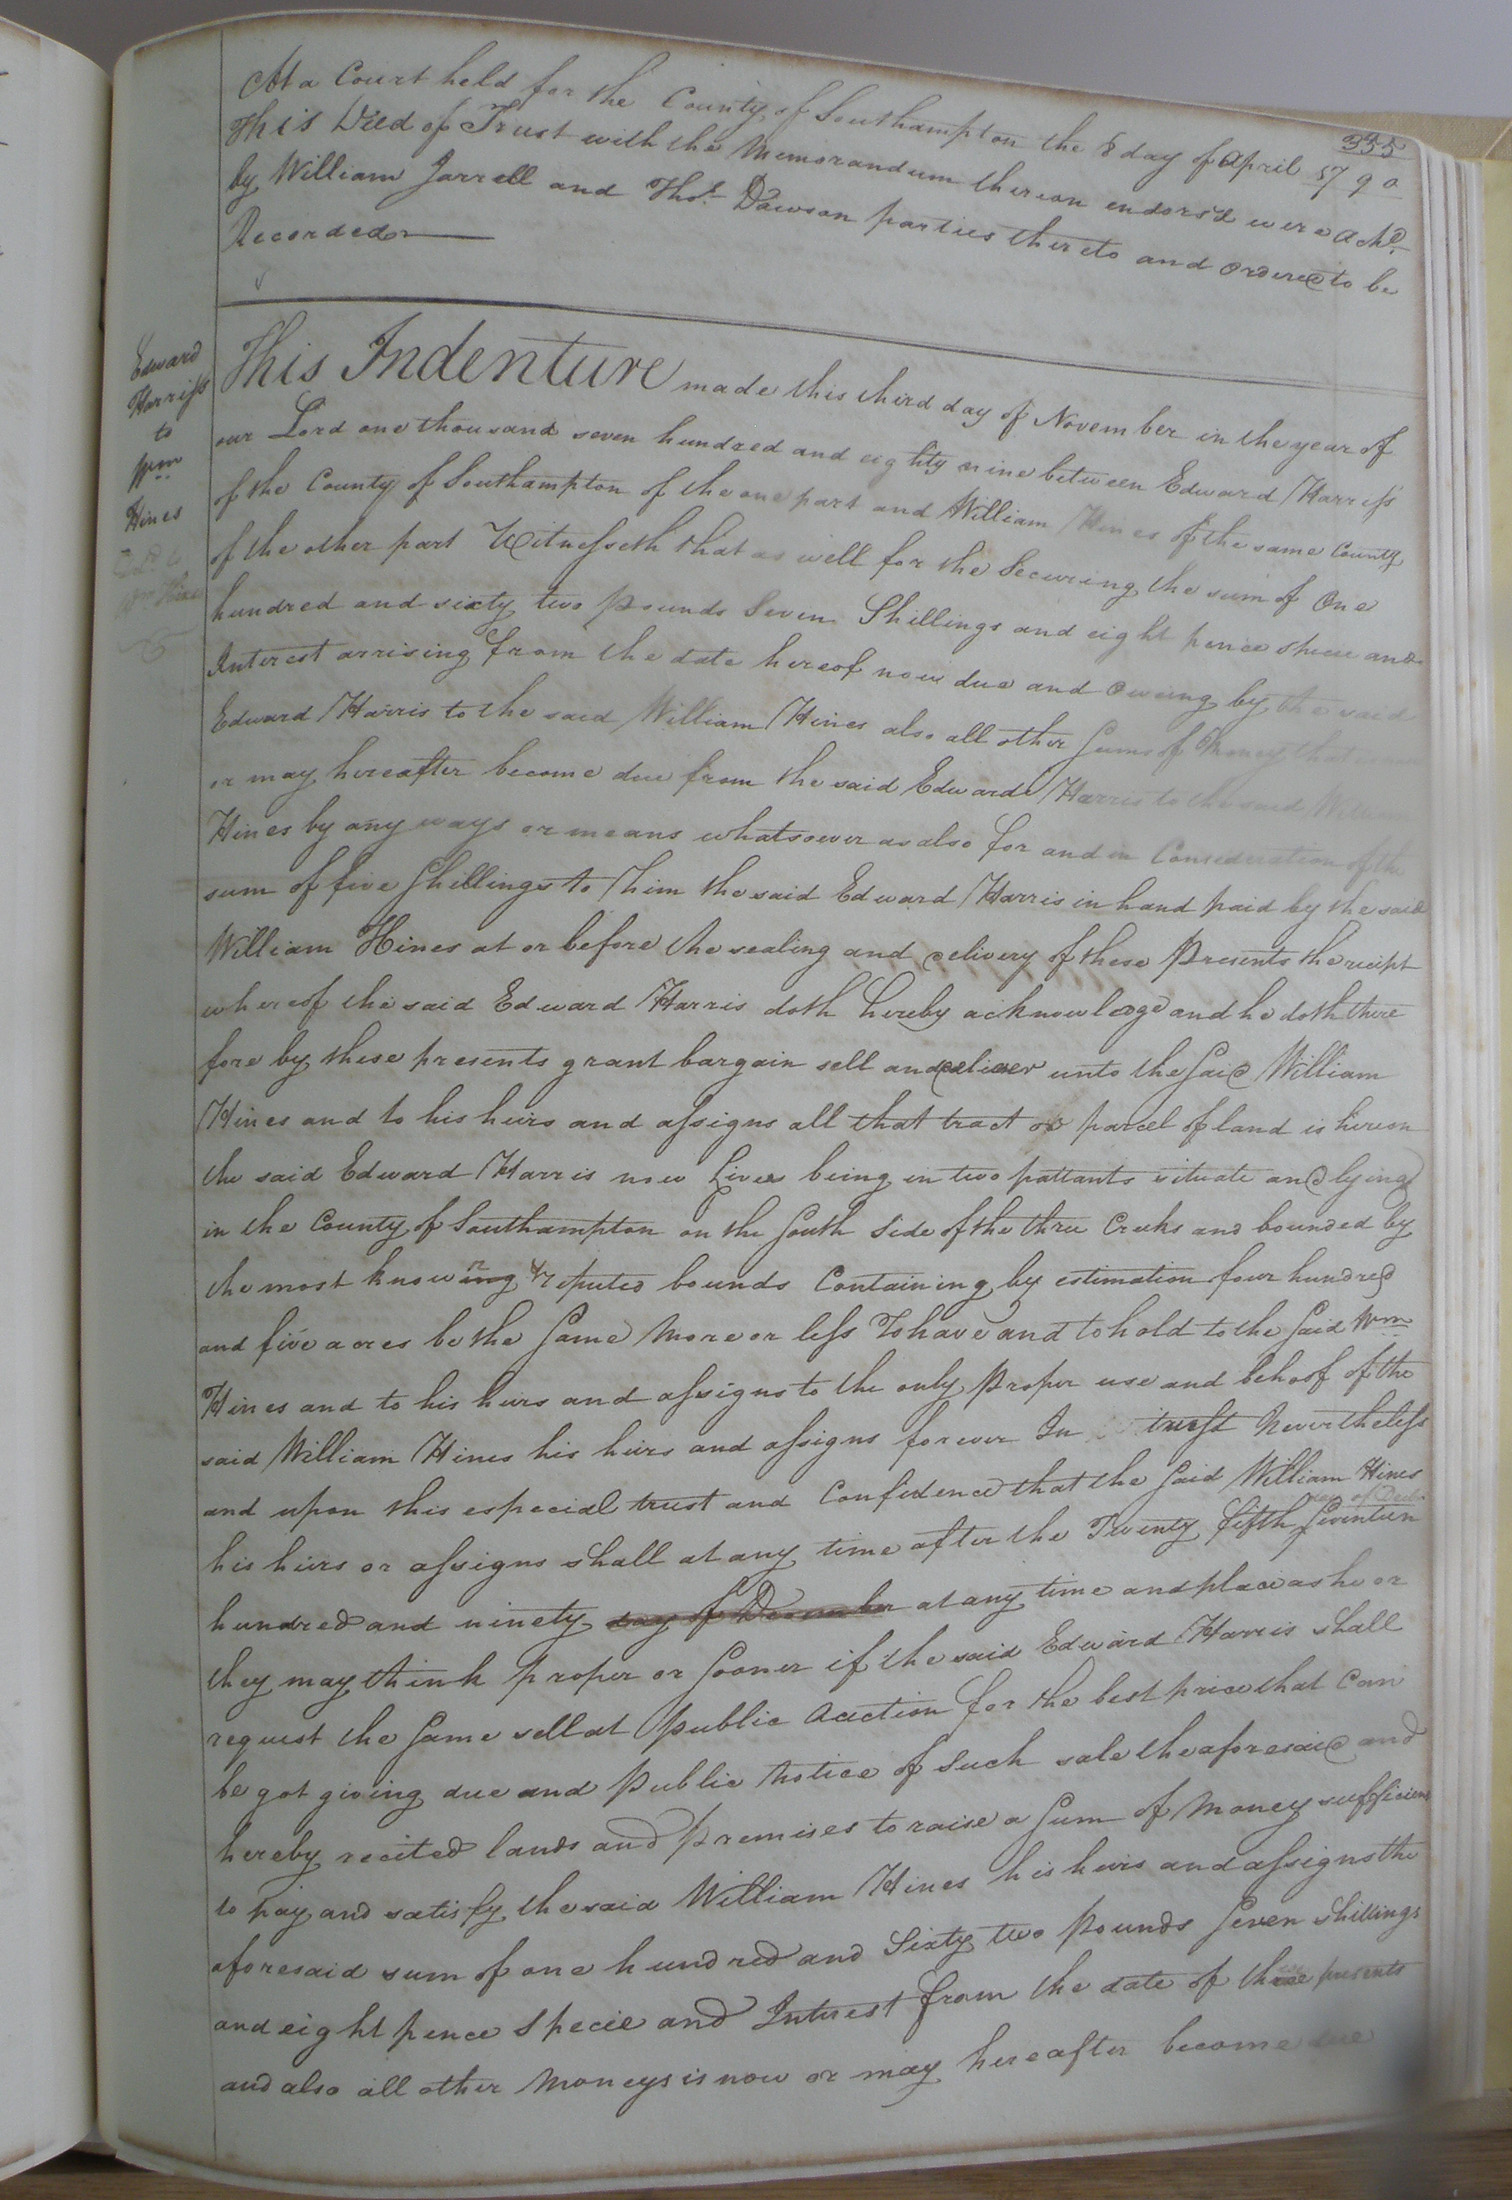 335
At a Court held for the County of Southampton the 8 day of April 1790
This Deed of Trust with the Memorandum thereon endors'd were Ackd.
by William Jarrell and Thos. Dawson parties thereto and Ordered to be
Recorded
Edward
Harriss
to
Wm
Hines
This Indenture made this third day of November in the year of
our Lord one thousand seven hundred and eighty nine between Edward Harriss
of the County of Southampton of the one part and William Hines of the same County
of the other part Witnesseth that as well for the Securing the sum of One
hundred and sixty two pounds Seven Shillings and eight pence specie and
Interest arrising from the date hereof now due and Oweing by the said
Edward Harris to the said William Hines also all other Sums of Money that
or may hereafter become due from the said Edward Harris to the said William
Hines by any ways or means whatsoever as also for and in Consederation of the
sum of five Shillings to him the said Edward Harris in hand paid by the said
William Hines at or before the sealing and delivery of these Presents the recipt
whereof the said Edward Harris doth hereby acknowledge and he doth there
fore by these presents grant bargain sell and deliver unto the Said William
Hines and to his heirs and assigns all that tract or parcel of land is hereon
the said Edward Harris now Lives being in two pattants situate and lying
in the County of Southampton on the South Side of the three Creeks and bounded by
the most known & reputed bounds Containing by estimation four hundred
and five acres be the Same More or less To have and to hold to the Said Wm
Hines and to his heirs and assigns to the only Proper use and behoof of the
said William Hines his heirs and assigns forever In trust Nevertheless
and upon this especial trust and Confidence that the Said William Hines
day of Decbr
his heirs or assigns shall at any time after the Twenty fifth Seventeen
hundred and ninety day of December at any time and place as he or
they may think proper or Sooner if the said Edward Harris Shall
request the Same sell at Public Auction for the best price that Can
be got giving due and Public Notice of Such sale the aforesaid and
hereby recited lands and premises to raise a Sum of Money sufficient
to pay and satisfy the said William Hines his heirs and assigns the
aforesaid sum of one hundred and Sixty two Pounds Seven shillings
and eight pence Specie and Interest from the date of these presents
and also all other Moneys is now or may hereafter become due